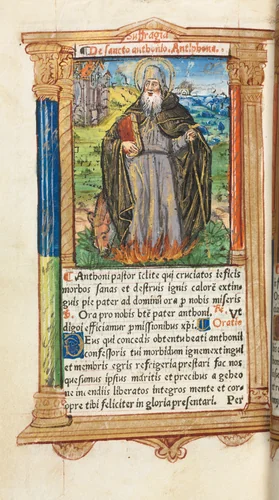 Suffragia
¶ De sancto anthonio. Antiphona.
¶ Anthoni pastor īclite qui cruciatos reficis
morbos sanas et destruis ignis calorē extin
guis pie pater ad dominū ora p nobis miseris
Ora pro nobis btē pater anthoni. Ut
digni efficiamur pmissionibus xpi. Oratio
Deus qui concedis obtentu beati anthonii
confessoris tui morbidum ignem extingui
et membris egris refrigeria prestari fac nos
quesumus ipsius meritis et precibus a gehen
ne incendiis liberatos integros mente et cor
pore tibi feliciter in gloria presentari. Per